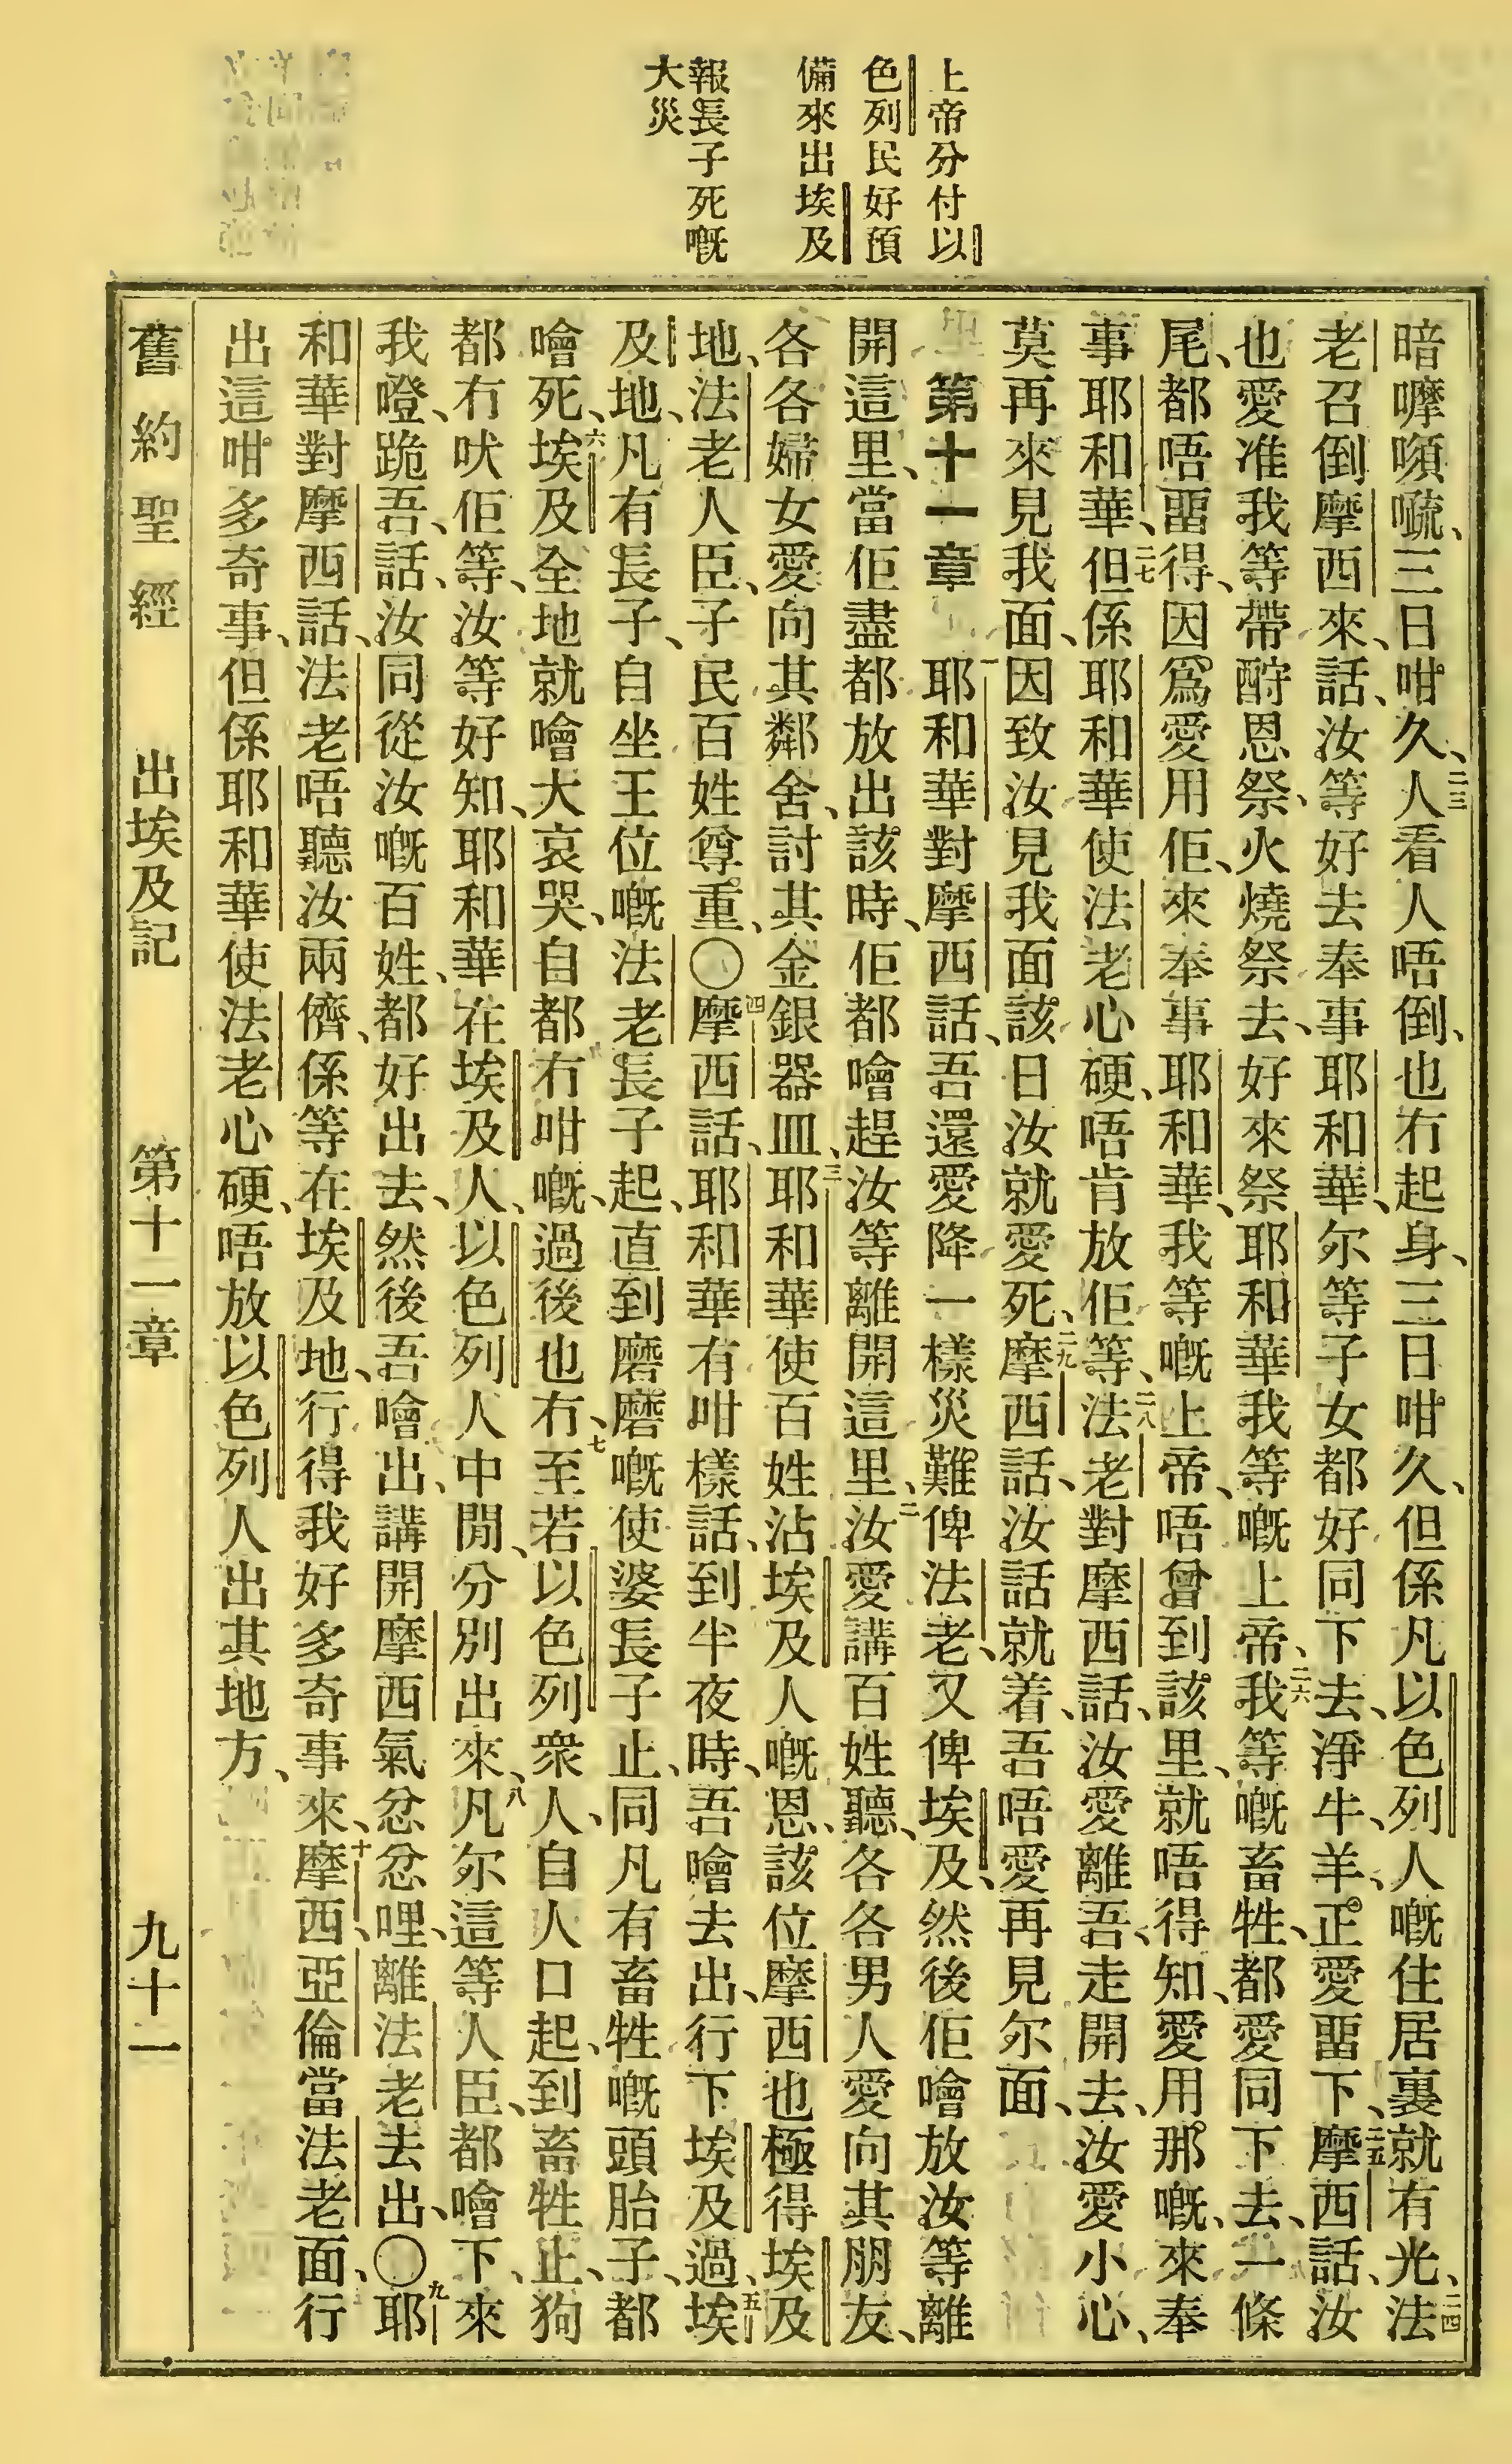 上帝分付以
色列民好預
備來出埃及
報長子死嘅
大災
暗嚤㗒𠿬、三日咁久、二三人看人唔倒、也冇起身、三日咁久、但係凡以色列人嘅住居裏就有光、二四法
老召倒摩西來、話、汝等好去奉事耶和華、尔等子女都好同下去、淨牛、羊、正愛畱下、二五摩西話、汝
也愛准我等帶酧恩祭、火燒祭去、好來祭耶和華我等嘅上帝、二六我等嘅畜牲、都愛同下去、一條
尾、都唔畱得、因爲愛用佢、來奉事耶和華、我等嘅上帝、唔曾到該里、就唔得知、愛用那嘅、來奉
事耶和華、二七但係耶和華使法老心硬、唔肯放佢等、二八法老對摩西話、汝愛離吾、走開去、汝愛小心、
莫再來見我面、因致汝見我面該日汝就愛死、二九摩西話、汝話就着、吾唔愛再見尔面、
第十一章 一耶和華對摩西話、吾還愛降一樣災難俾法老、又俾埃及、然後佢噲放汝等離
開這里、當佢盡都放出該時、佢都噲趕汝等離開這里、二汝愛講百姓聽、各各男人愛向其朋友、
各各婦女愛向其鄰舍、討其金銀器皿、三耶和華使百姓沾埃及人嘅恩、該位摩西也極得埃及
地、法老人臣、子民百姓尊重、〇四摩西話、耶和華有咁樣話、到半夜時、吾噲去出、行下埃及過、五埃
及地、凡有長子、自坐王位嘅法老長子起、直到磨磨嘅使婆長子止、同凡有畜牲嘅頭胎子、都
噲死、六埃及全地就噲大哀哭、自都冇咁嘅、過後也冇、七至若以色列衆人、自人口起、到畜牲止、狗
都冇吠佢等、汝等好知、耶和華在埃及人、以色列人中閒、分別出來、八凡尔這等人臣、都噲下來
我嶝、跪吾、話、汝同從汝嘅百姓、都好出去、然後吾噲出、講開摩西氣忿忿哩、離法老去出、〇九耶
和華對摩西話、法老唔聽汝兩儕、係等在埃及地、行得我好多奇事來、十摩西、亞倫當法老面、行
出這咁多奇事、但係耶和華使法老心硬、唔放以色列人出其地方、
舊約聖經 出埃及記 第十一章 九十一